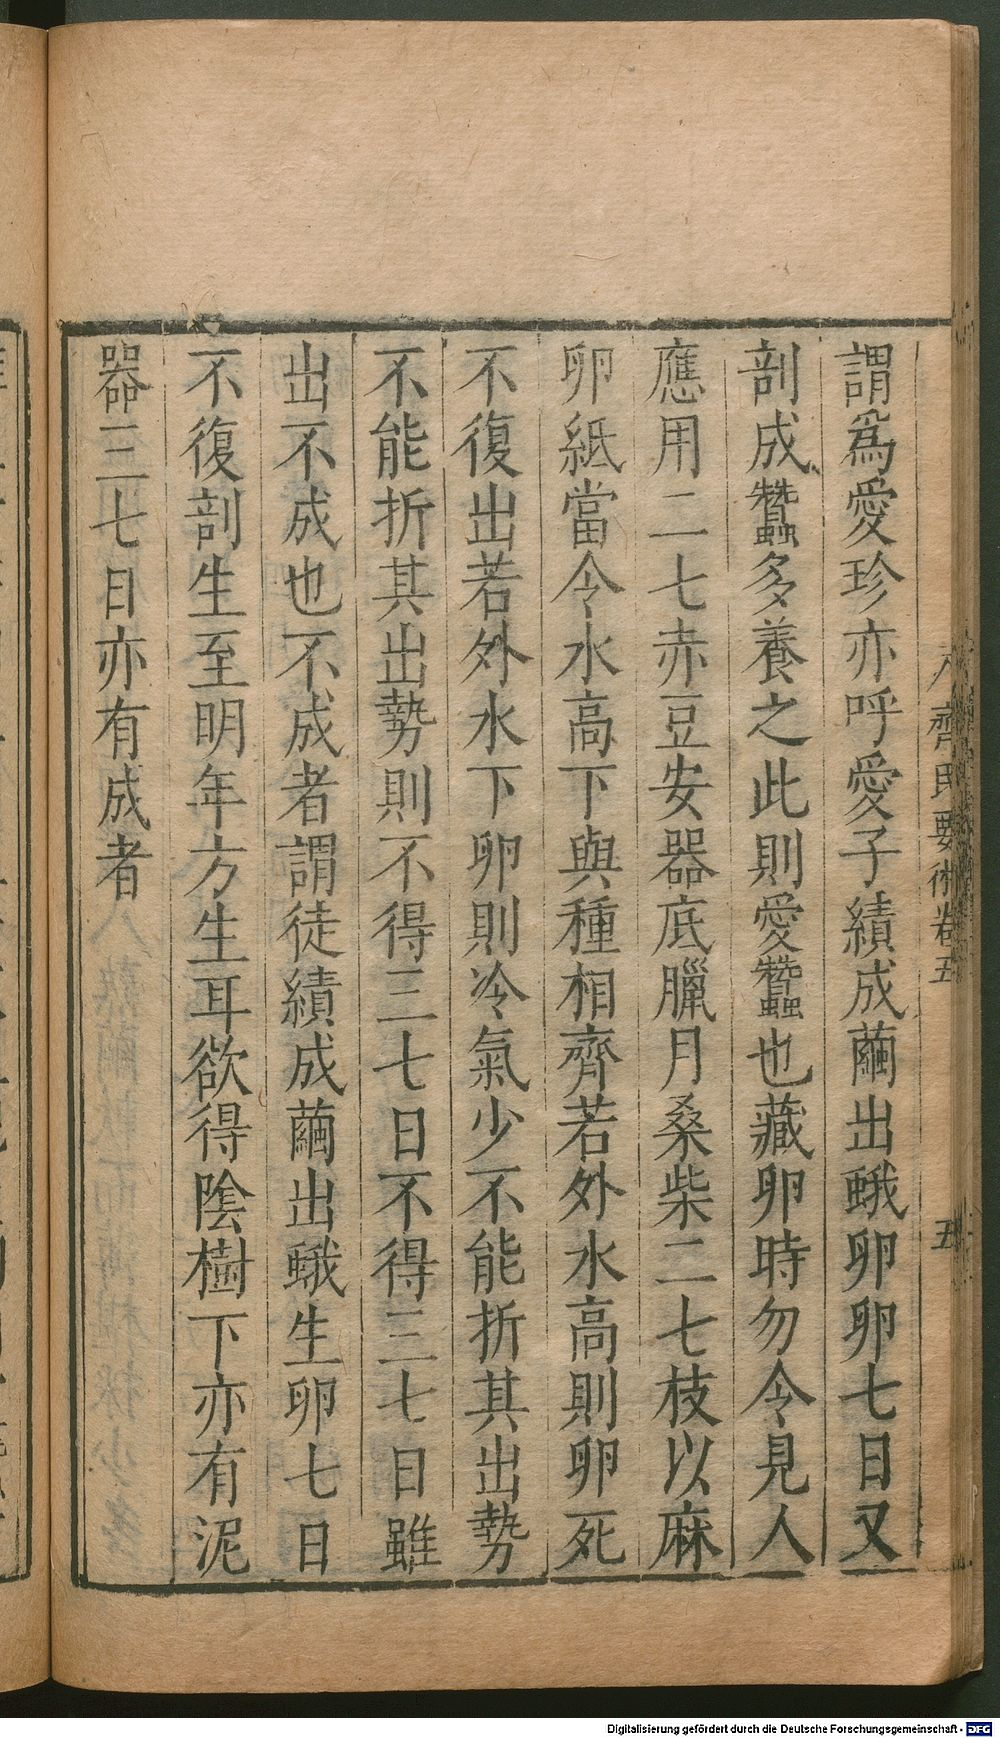 謂爲愛珍亦呼愛子績成繭出蛾卵卵七日又
剖成蠶多養之此則愛蠶也藏卵時勿令見人
應用二七赤豆安器底臘月桑柴二七枝以麻
卵紙當令水高下與種相齊若外水高則卵死
不復出若外水下卵則冷氣少不能折其出勢
不能折其出勢則不得三七日不得三七日雖
出不成也不成者謂徒績成繭出蛾生卵七日
不復剖生至明年方生耳欲得陰樹下亦有泥
器三七日亦有成者
齊民要術卷五
五
Digitalisierung gefördert durch die Deutsche Forschungsgemeinschaft - DFG